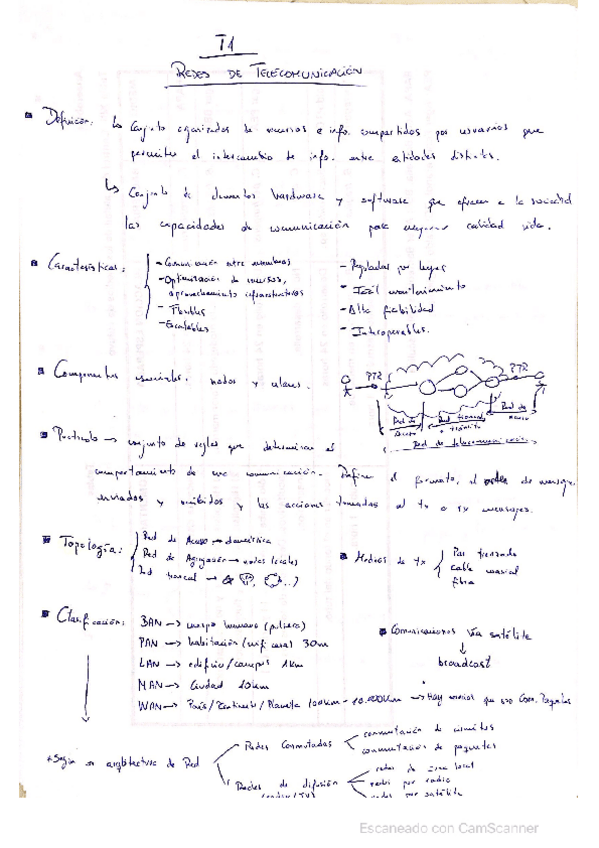 T1
REDES DE TELECOMUNICACIÓN
Definición: ↳ Conjunto organizados de recursos e info. compartidos por usuarios que
permiten el intercambio de info. entre entidades distintas.
↳ Conjunto de elementos hardware y software que ofrecen a la sociedad
las capacidades de comunicación para mejorar calidad vida.
Características:
- Comunicación entre miembros
- Optimización de recursos,
aprovechamiento infraestructuras
- Flexibles
- Escalables
- Reguladas por leyes
- Fácil mantenimiento
- Alta fiabilidad
- Interoperables.
Componentes esenciales: nodos y enlaces.
PTR
PTR
Red de acceso
Red troncal o tránsito
Red de acceso
Red de telecomunicación
Protocolo → conjunto de reglas que determinan el
comportamiento de una comunicación. Define el formato, el orden de mensajes
enviados y recibidos y las acciones tomadas al tx o rx mensajes.
Topología:
Red de Acceso → doméstica
Red de Agregación → nodos locales
Red troncal →
Medios de tx
Par trenzado
cable coaxial
fibra
Clasificación:
BAN → cuerpo humano (pulsera)
PAN → habitación (wifi casa) 30m
LAN → edificio/campus 1km
MAN → Ciudad 10km
WAN → País/Continente/Planeta 100km - 10.000km → Hay varias que son Con. Paquetes
Comunicaciones vía satélite
↓
broadcast
* Según su arquitectura de Red
Redes Conmutadas
conmutación de circuitos
conmutación de paquetes
Redes de difusión
(radio/TV)
redes de área local
redes por radio
redes por satélite
Escaneado con CamScanner